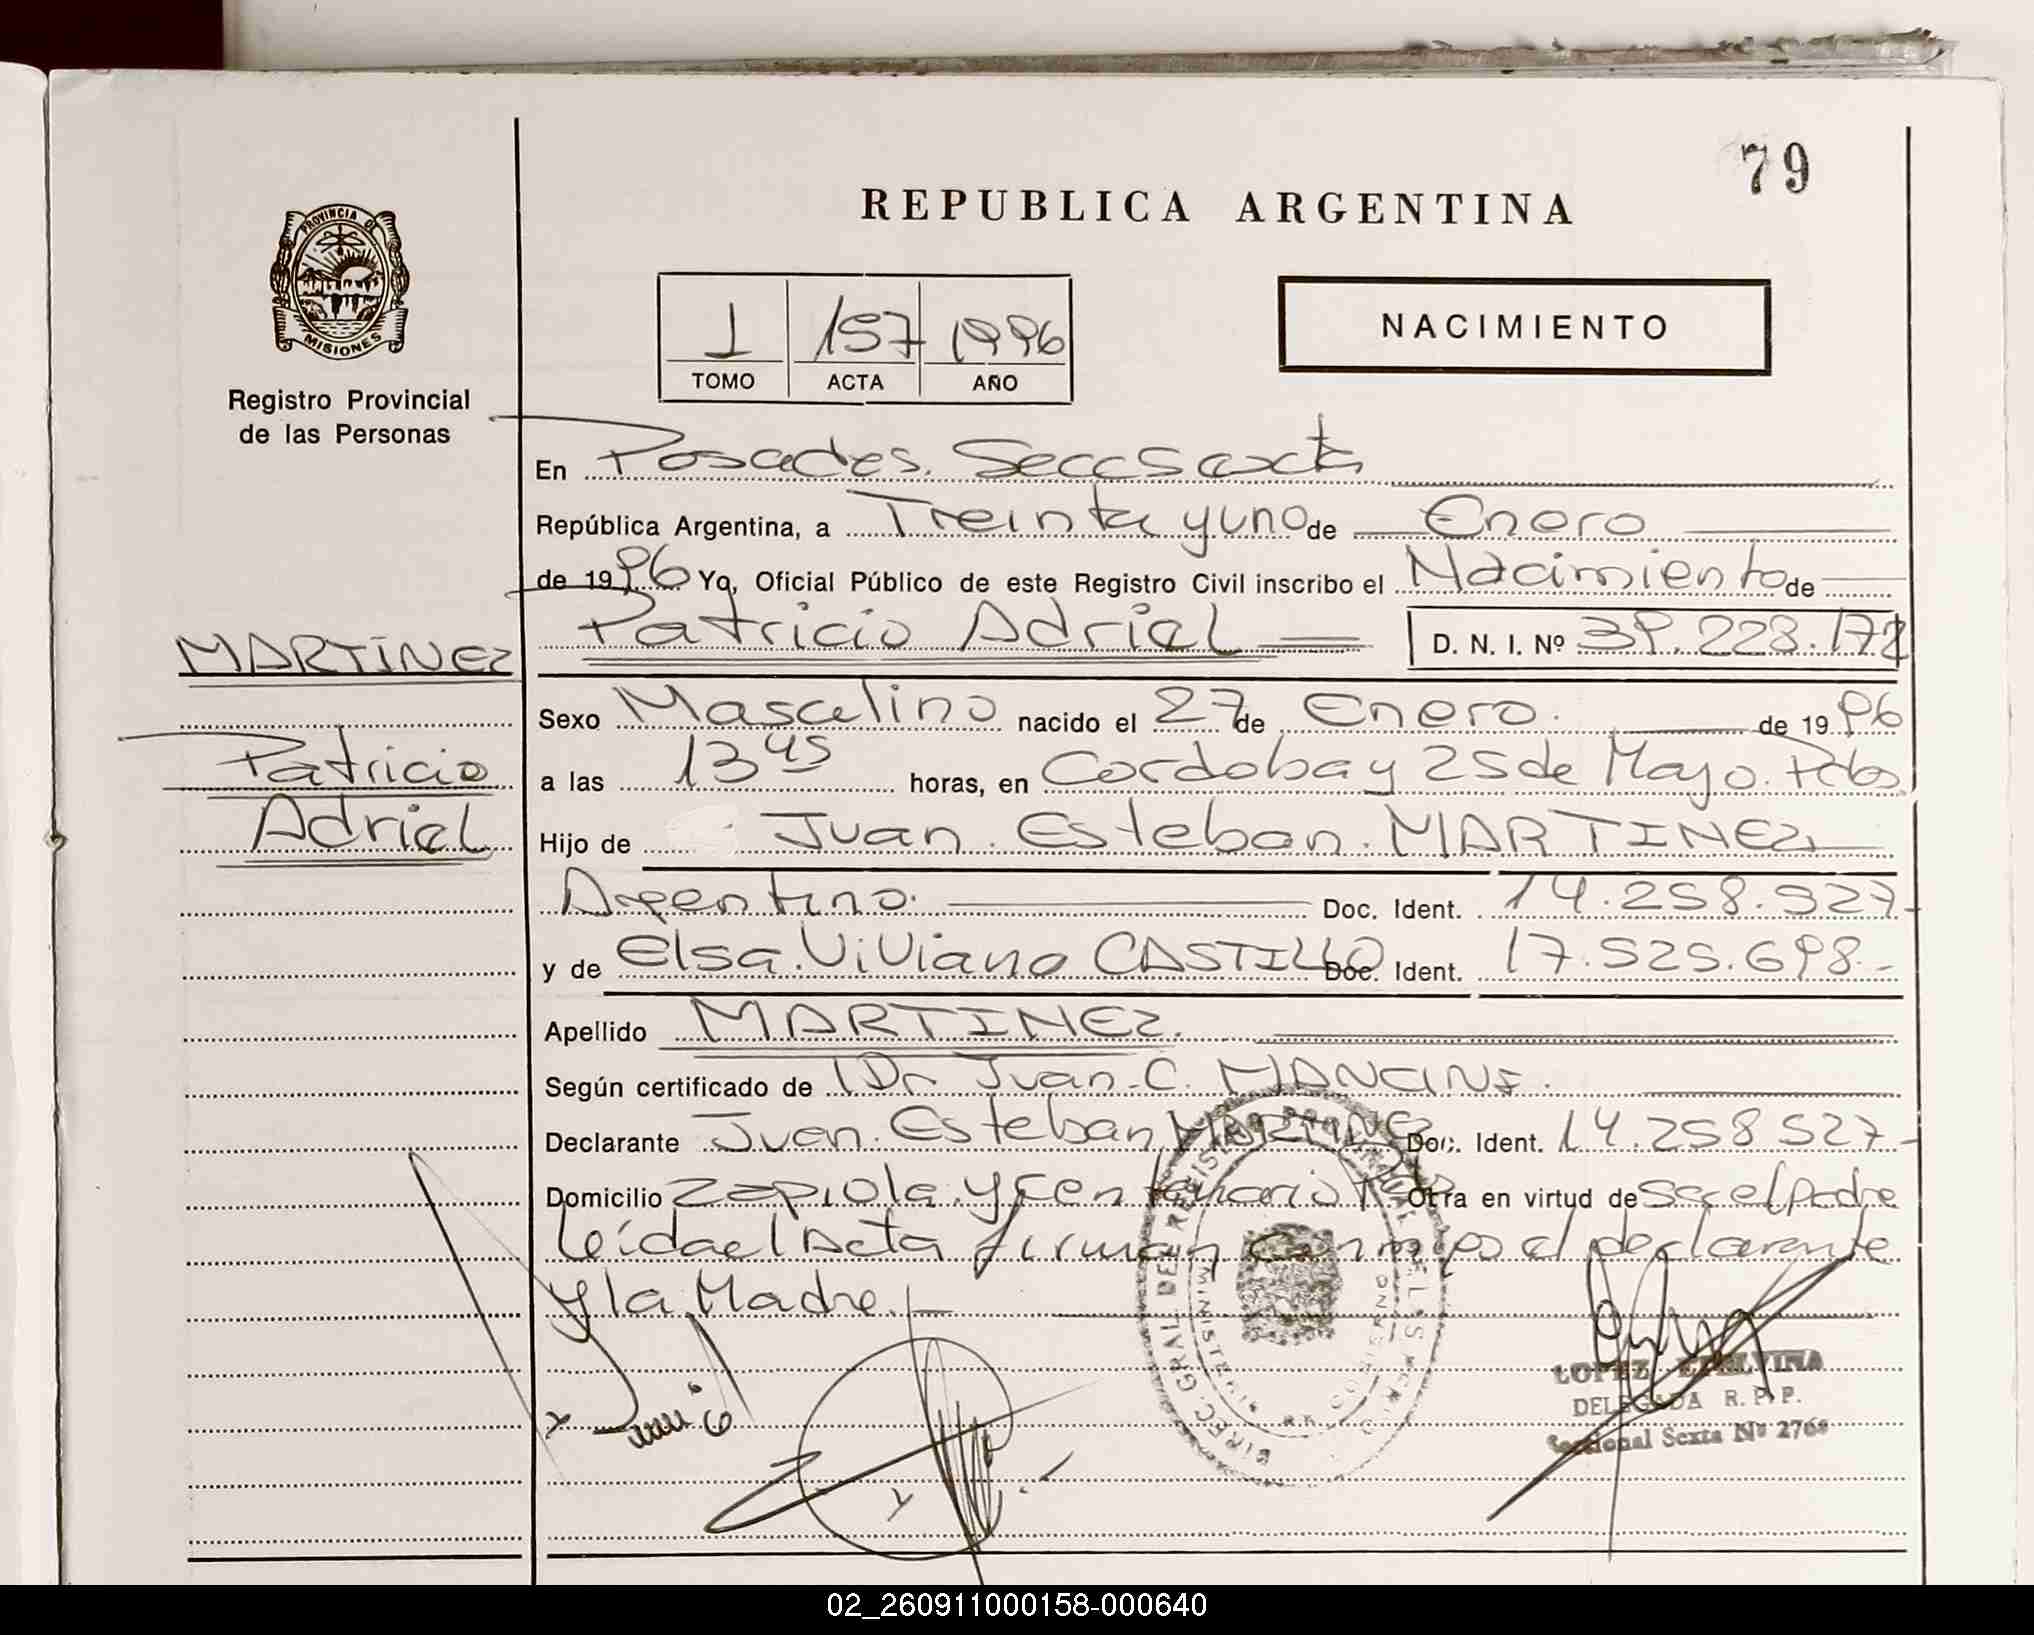 79
REPUBLICA ARGENTINA
PROVINCIA DE
MISIONES
Registro Provincial
de las Personas
1 157 1996
TOMO ACTA AÑO
NACIMIENTO
En Posadas. Secc Sexta
República Argentina, a Treinta y uno de Enero
de 1996 Yo, Oficial Público de este Registro Civil inscribo el Nacimiento de
Patricio Adriel D. N. I. Nº 39.228.172
MARTINEZ
Patricio
Adriel
Sexo Masculino nacido el 27 de Enero. de 1996
a las 13 45 horas, en Cordoba y 25 de Mayo. Pdas
Hijo de Juan Esteban. MARTINEZ
Argentino. Doc. Ident. 14.258.527-
y de Elsa. Viviana CASTILLO Doc. Ident. 17.525.698.-
Apellido MARTINEZ.
Según certificado de Dr Juan C. MANCINI.
Declarante Juan Esteban MARTINEZ Doc. Ident. 14.258527-
Domicilio Zapiola y Centenario Otra en virtud de ser el padre
leída el Acta firman conmigo el declarante
y la Madre.
DIREC. GRAL DEL REGISTRO PROVINCIAL DE LAS PERSONAS
MINISTERIO DE GOBIERNO
LOPEZ EDELVINA
DELEGADA R. P. P.
Seccional Sexta Nº 2768
02_260911000158-000640